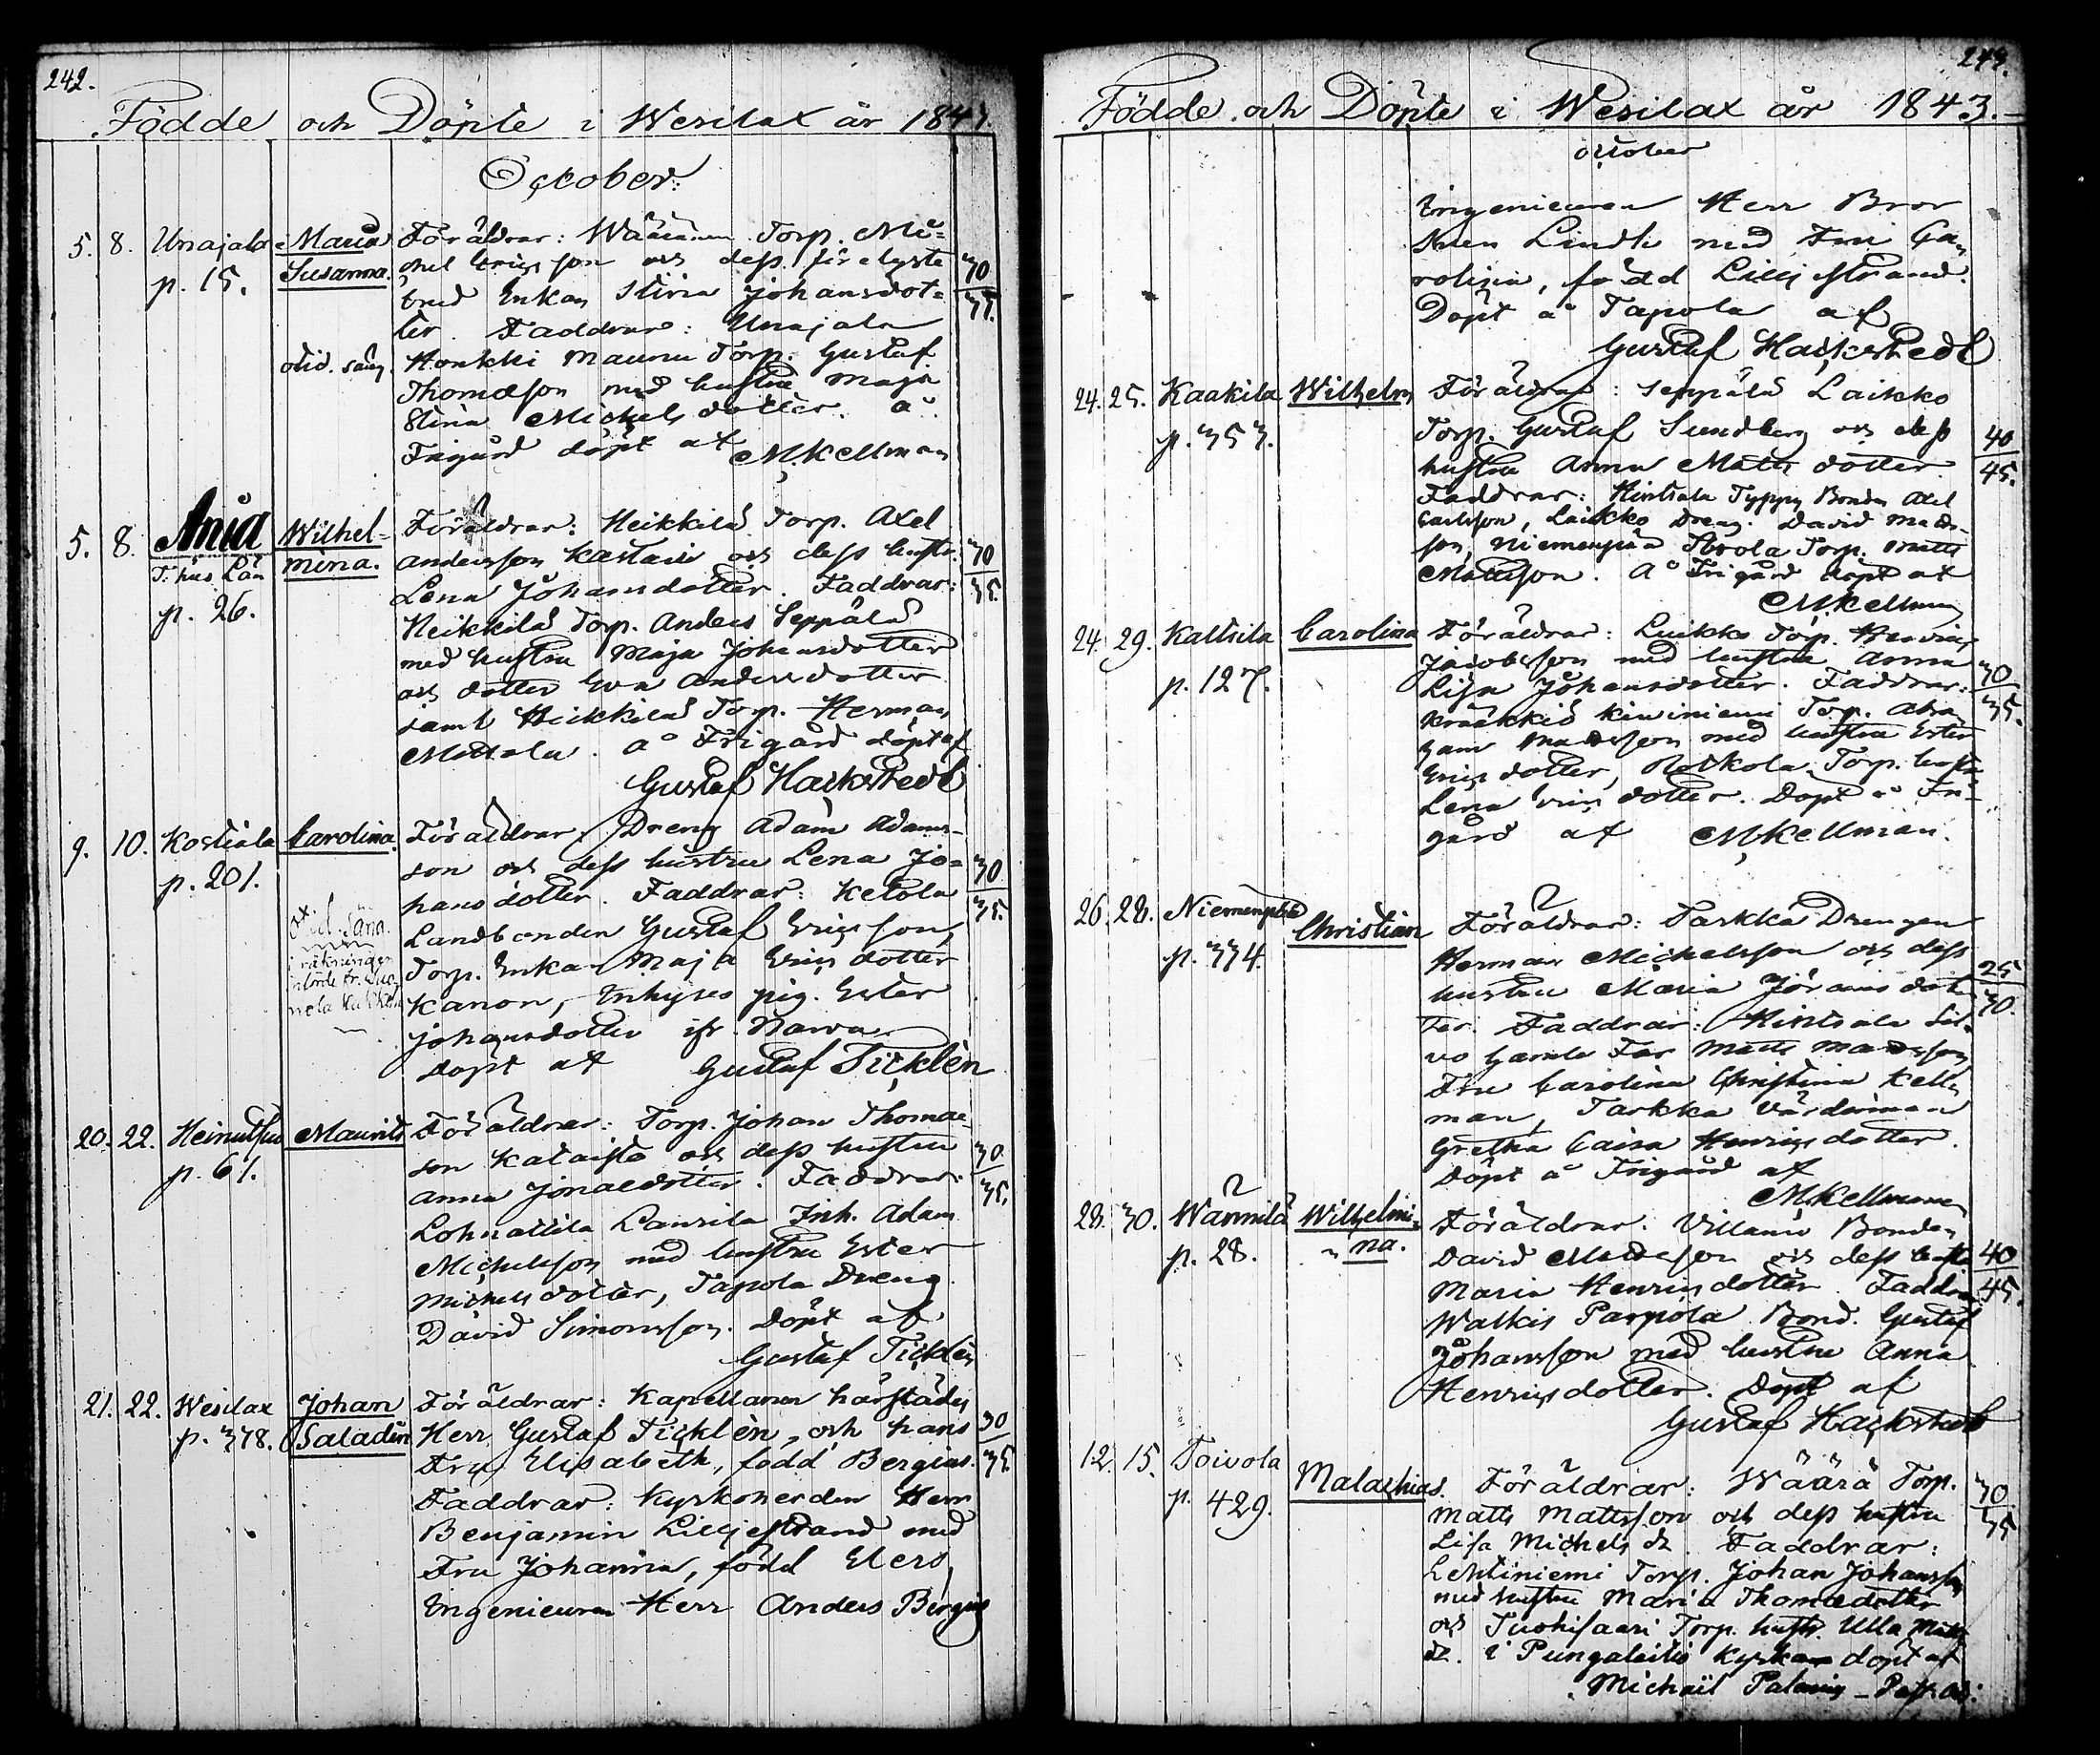 242.
Födde och Döpte i Wesilax år 1843.
October.
5. 8. Unajala p. 15. Maria Susanna.
Föräldrar: Torp. Mi=
chel Ericsson och dess
Enkan Stina Johansdot=
ter. Faddrar: Unajala
Honkki Maunu Torp. Gustaf
Thomasson med hustru Maja
Stina Michels dotter. å
Frigård döpt af MKellman
30
35.
5. 8. Ania p. 26. Wilhel=
mina.
Föräldrar: Heikkilä Torp. Axel
Andersson och dess hustr.
Lena Johansdotter. Faddrar:
Heikkilä Torp. Anders Seppälä
med hustru Maja Johansdotter
och dotter Eva Andersdotter
samt Heikkilä Torp. Herman
Mattala. å Frigård döpt af
Gustaf Hackstedt
30
35.
9. 10. Kostiala p. 201. Carolina.
Föräldrar: Dreng Adam Adams-
son och dess hustru Lena Jo=
hansdotter. Faddrar: Ketola
Landbonden Gustaf Ericsson,
Torp. Enka Maja Erics dotter
Kanon, Inhyses pig. Ester
Johansdotter ifr. Narva
döpt af Gustaf Ticklén
30
35.
20. 22. Heinutsuo p. 61. Maurits
Föräldrar: Torp. Johan Thomas-
son Kataisto och dess hustru
Anna Jonaedotter. Faddrar:
Lohnattila Laurila Inh. Adam
Michelsson med hustru Ester
Michelsdotter, Tapola Dreng
David Simonsson. Döpt af
Gustaf Ticklén
30.
35.
21. 22. Wesilax p. 378. Johan
Saladin
Föräldrar: Kapellanen härstädes
Herr Gustaf Ticklén, och hans
Fru Elisabeth, född Bergius.
Faddrar: Kyrkoherden Herr
Benjamin Lilljestrand med
Fru Johanna, född Elers,
Ingenieuren Herr Anders Bergius
30
35.
243.
Födde och Döpte i Wesilax år 1843.
October
Ingenieuren Herr Bror
Sven Lindh med Fru Ca
rolina, född Lilljestrand.
Döpt å Tapola af
Gustaf Hackstedt
24. 25. Kaakila p. 353. Wilhelm
Föräldrar: Seppälä Laikko
Torp. Gustaf Sundberg och dess
hustru Anna Matts dotter
Faddrar: Hintsala Typpy Bonden Axel
Carlsson, Laikko Dreng. David Mads-
son, Niemenpää Torp. Matts
Mattsson. Å Frigård döpt af
MKellman
40
45.
24. 29. Kaltsila p. 127. Carolina
Föräldrar: Luikko Torp. Henric
Jacobsson med hustru Anna
Lisa Johansdotter. Faddrar:
Krääkkiö Kiviniemi Torp. Abra
ham Madsson med hustru Ester
Erics dotter, Torp. hustr.
Lena Erics dotter. Döpt å Fri-
gård af MKellman.
30
35.
26. 28. Niemenpää p. 334. Christian
Föräldrar: Tarkka Drengen
Herman Michelsson och dess
hustru Maria Jöransdot
ter. Faddrar: Hintsala Sil-
vo Gamle Far Matts Madsson,
Fru Carolina Christina Kell
man, Tarkka Värdinnan
Gretha Caisa Henrics dotter.
Döpt å Frigård af
MKellman
25
30.
28. 30. Wännilä p. 28. Wilhelmi=
na.
Föräldrar: Villamo Bonden
David Madsson och dess hustru
Maria Henricsdotter. Faddrar
Walkis Parpola Bond. Gustaf
Johansson med hustru Anna
Henricsdotter. Döpt af
Gustaf Hackstedt
40
45.
12. 15. Toivola p. 429. Malachias.
Föräldrar: Wäärä Torp.
Matts Mattsson och dess hustru
Lisa Michels dr. Faddrar:
Lehtiniemi Torp. Johan Johansson
med hustru Maria Thomasdotter
och Tuohisaari Torp. hustr. Ulla Matts
dr. i Pungalaitio Kyrka döpt af
Michaël Palanius - Past. Adj.
30
35